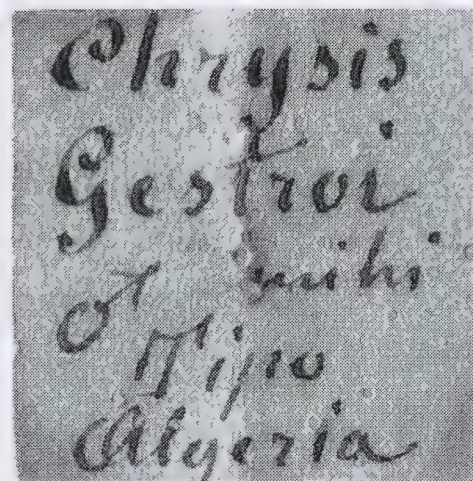 Chrysis
Gestroi
mihi
♂ Tipo
Algeria